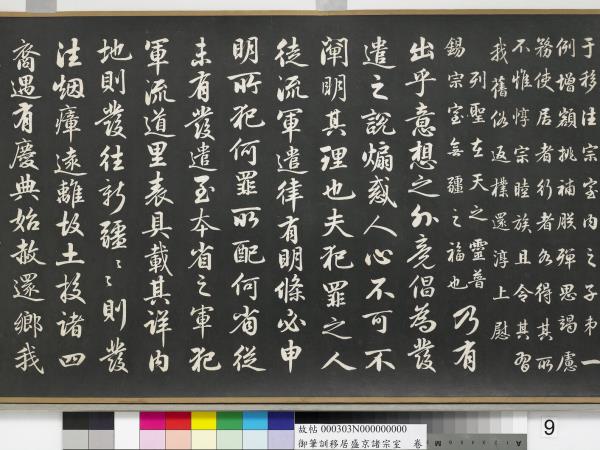 于移住宗室內之子弟一
例增額挑補朕殫思竭慮
務使居者行者各得其所
不惟惇宗睦族且令其習
我舊俗返樸還淳上慰
列聖在天之靈普
錫宗室無疆之福也
乃有
出乎意想之外竟倡為發
遣之說煽惑人心不可不
闡明其理也夫犯罪之人
徒流軍遣律有明條必申
明所犯何罪所配何省從
未有發遣至本省之軍犯
軍流道里表具載其詳內
地則發往新疆〻〻則發
往烟瘴遠離故土投諸四
裔遇有慶典始赦還鄉我
故帖 000303N000000000
御筆訓移居盛京諸宗室 卷
9